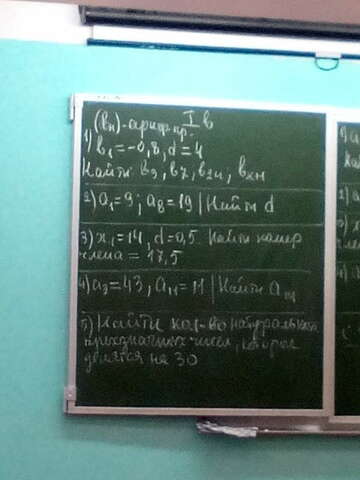 I в
(bн)-ариф. пр.
1) b₁=-0,8, d=4
Найти b₃, b₇, b₂₄, bₖₙ
2) a₁=3; a₈=19 | Найти d
3) x₁=14, d=0,5. Найти номер
члена = 17,5
4) =43, =11 | Найти
5) Найти кол-во натуральных
трехзначных чисел, которые
делятся на 30